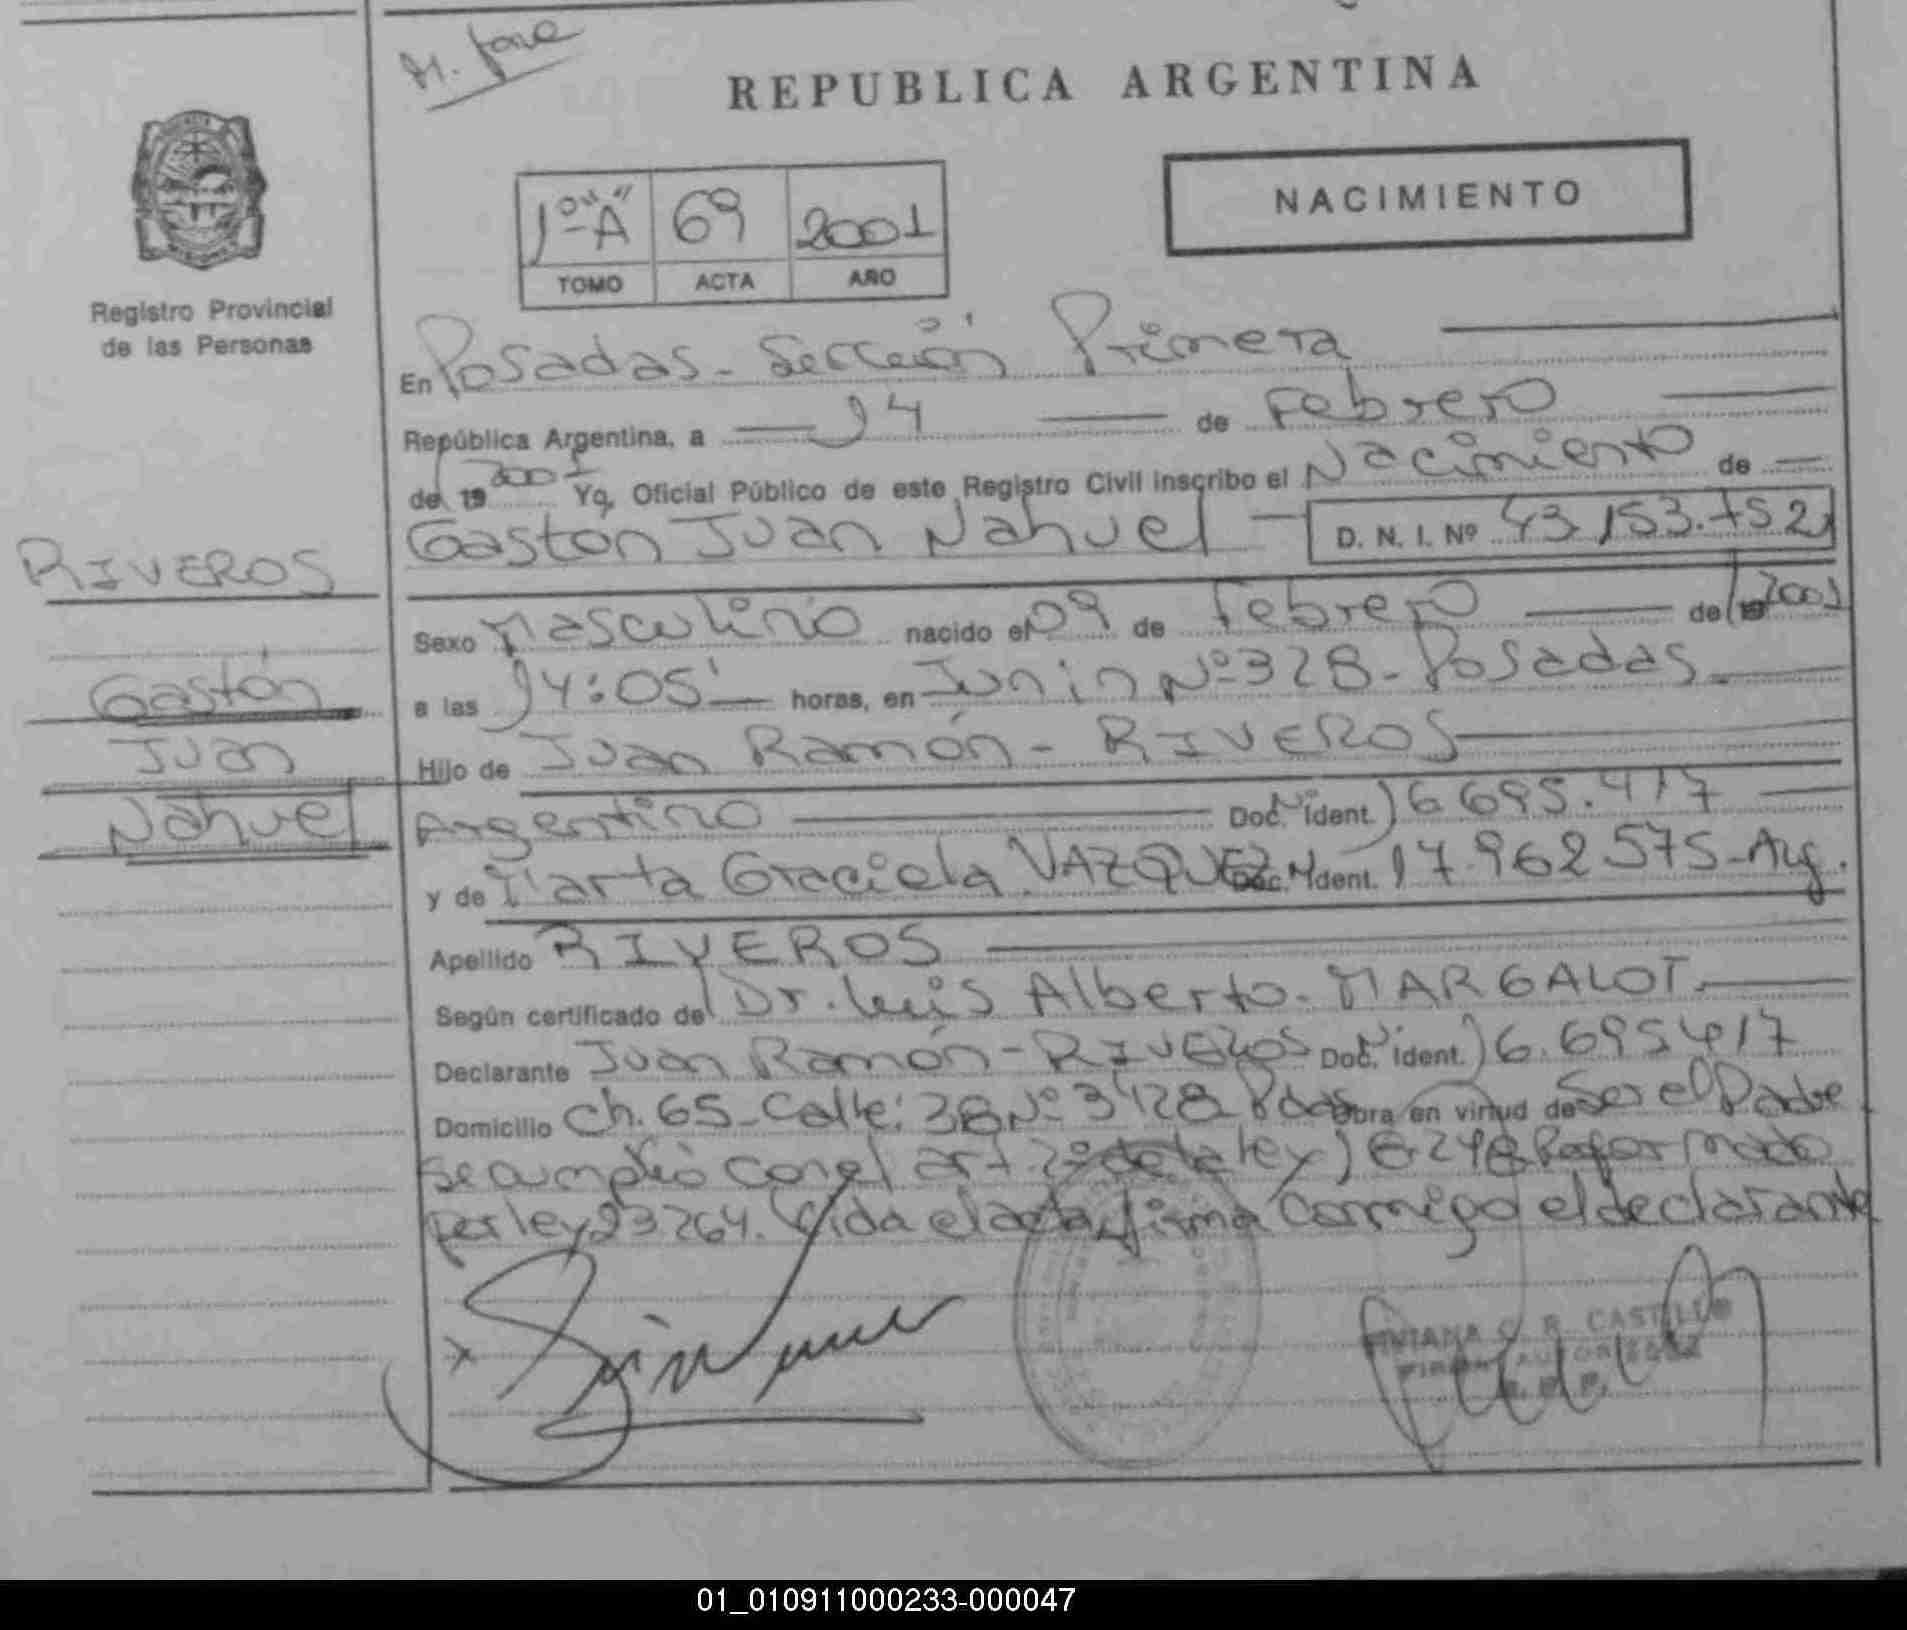 M. José
REPUBLICA ARGENTINA
NACIMIENTO
1º "A" 69 2001
TOMO ACTA AÑO
Registro Provincial
de las Personas
En Posadas - Sección Primera
República Argentina, a 14 de Febrero
de 19 2001 Yo, Oficial Público de este Registro Civil inscribo el Nacimiento de
Gastón Juan Nahuel D. N. I. Nº 43.153.752
RIVEROS
Gastón
Juan
Nahuel
Sexo Masculino nacido el 09 de Febrero de 19 2001
a las 14:05' horas, en Junin Nº 328 - Posadas
Hijo de Juan Ramón - RIVEROS
Argentino Doc. Nº ident. 16.695.417
y de Marta Graciela VAZQUEZ Doc. Nº ident. 17.962.575 - Arg.
Apellido RIVEROS
Según certificado del Dr. Luis Alberto - MARGALOT
Declarante Juan Ramón - RIVEROS Doc. Nº ident. 16.695417
Domicilio Ch. 65 - Calle: 38 Nº 3428 Pdas Obra en virtud de Ser el Padre
se cumplió con el art. 2º de la ley 18248 Reformado
por ley 23264. Leida el acta, firma conmigo el declarante
CASTILLO
FIRMA AUTORIZADA
R. P. P.
01_010911000233-000047